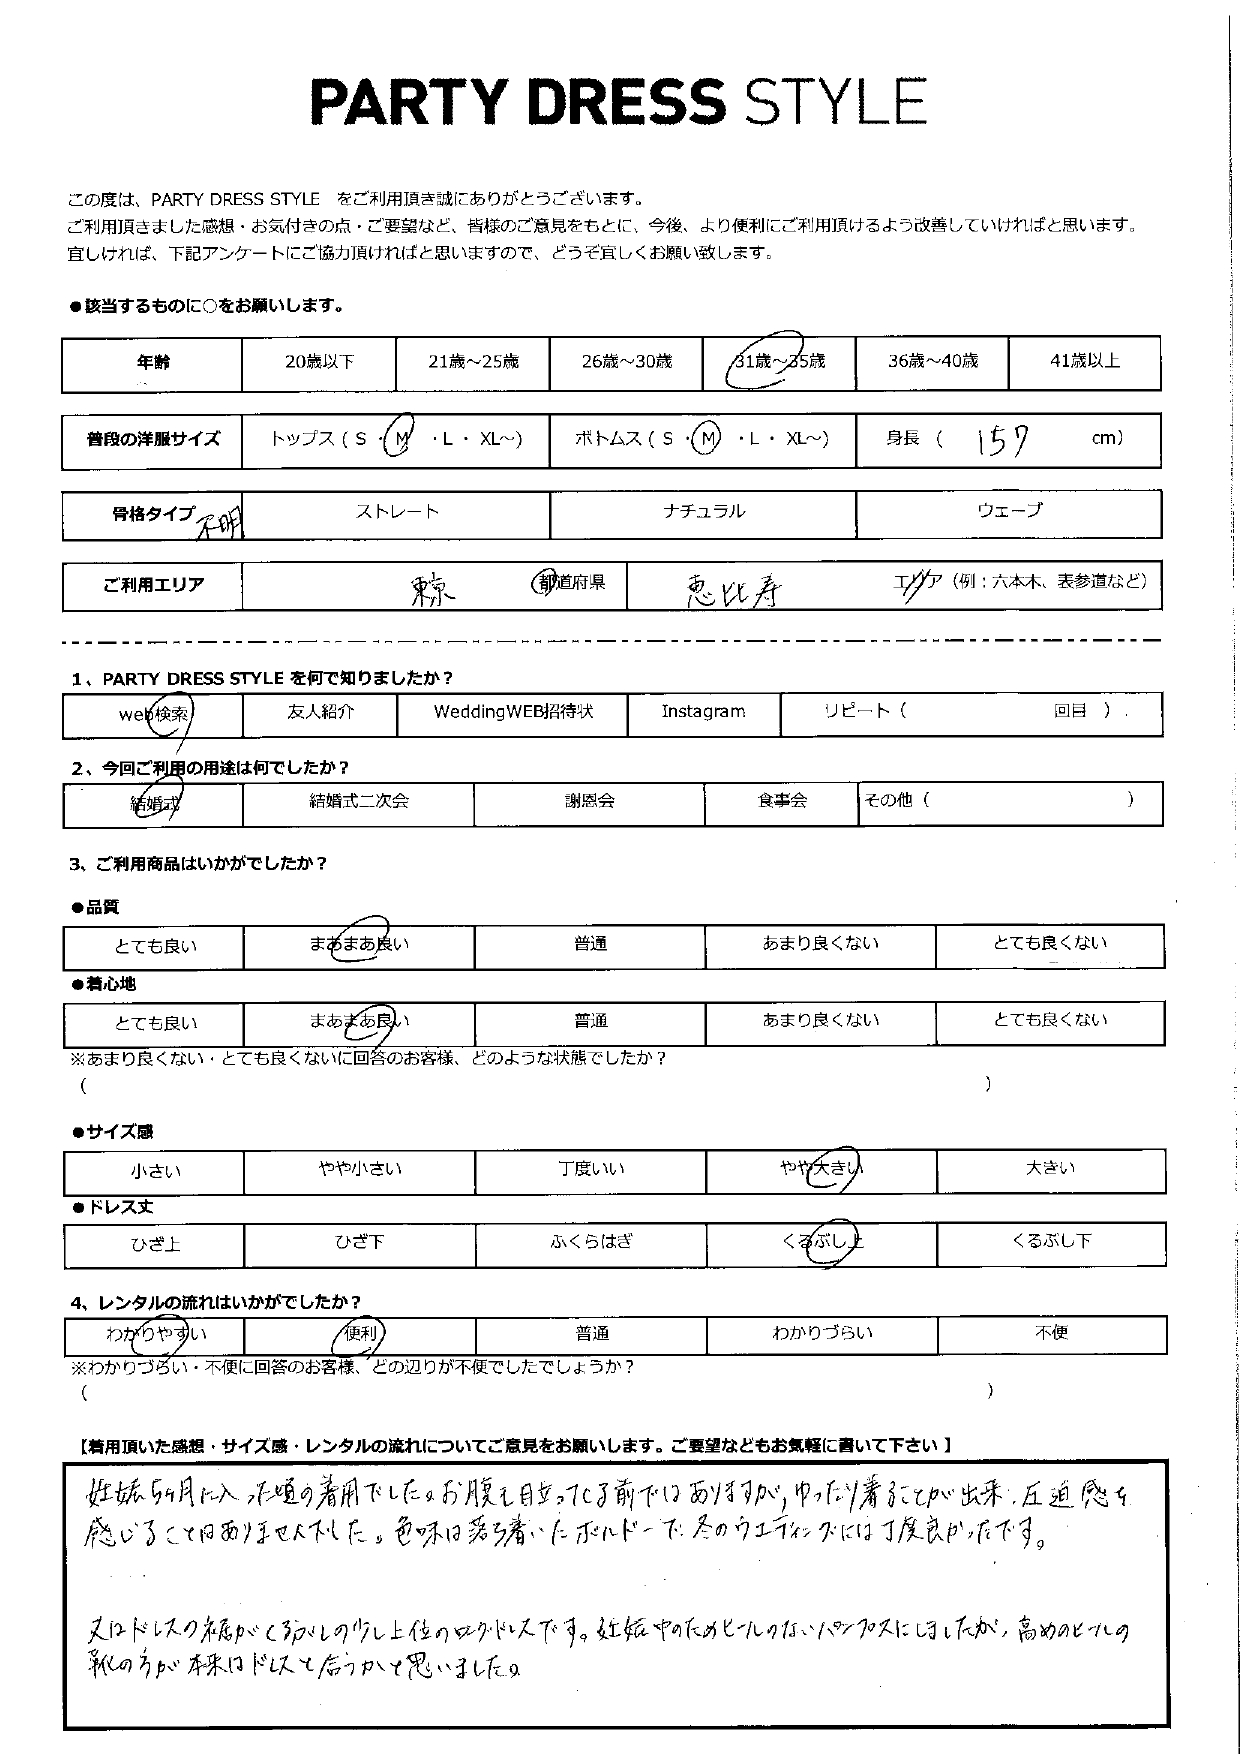 PARTY DRESS STYLE
この度は、PARTY DRESS STYLE をご利用頂き誠にありがとうございます。
ご利用頂きました感想・お気付きの点・ご要望など、皆様のご意見をもとに、今後、より便利にご利用頂けるよう改善していければと思います。
宜しければ、下記アンケートにご協力頂ければと思いますので、どうぞ宜しくお願い致します。
●該当するものに○をお願いします。
年齢 20歳以下 21歳～25歳 26歳～30歳 31歳～35歳 36歳～40歳 41歳以上
普段の洋服サイズ トップス（ S ・ M ・ L ・ XL～） ボトムス（ S ・ M ・ L ・ XL～） 身長 （ 157 cm）
骨格タイプ 不明 ストレート ナチュラル ウェーブ
ご利用エリア 東京 都道府県 恵比寿 エリア（例：六本木、表参道など）
1、PARTY DRESS STYLE を何で知りましたか？
web検索 友人紹介 WeddingWEB招待状 Instagram リピート（ 回目 ）
2、今回ご利用の用途は何でしたか？
結婚式 結婚式二次会 謝恩会 食事会 その他（ ）
3、ご利用商品はいかがでしたか？
●品質
とても良い まあまあ良い 普通 あまり良くない とても良くない
●着心地
とても良い まあまあ良い 普通 あまり良くない とても良くない
※あまり良くない・とても良くないに回答のお客様、どのような状態でしたか？
（ ）
●サイズ感
小さい やや小さい 丁度いい やや大きい 大きい
●ドレス丈
ひざ上 ひざ下 ふくらはぎ くるぶし上 くるぶし下
4、レンタルの流れはいかがでしたか？
わかりやすい 便利 普通 わかりづらい 不便
※わかりづらい・不便に回答のお客様、どの辺りが不便でしたでしょうか？
（ ）
【着用頂いた感想・サイズ感・レンタルの流れについてご意見をお願いします。ご要望などもお気軽に書いて下さい】
妊娠5ヶ月に入った頃の着用でした。お腹も目立ってくる前ではありますが、ゆったり着ることが出来、圧迫感を
感じることはありませんでした。色味は落ち着いたボルドーで冬のウエディングには丁度良かったです。
又はドレスの裾がくるぶしの少し上位のロングドレスです。妊娠中のためヒールのないパンプスにしましたが、高めのヒールの
靴の方が本来はドレスと合うかと思いました。